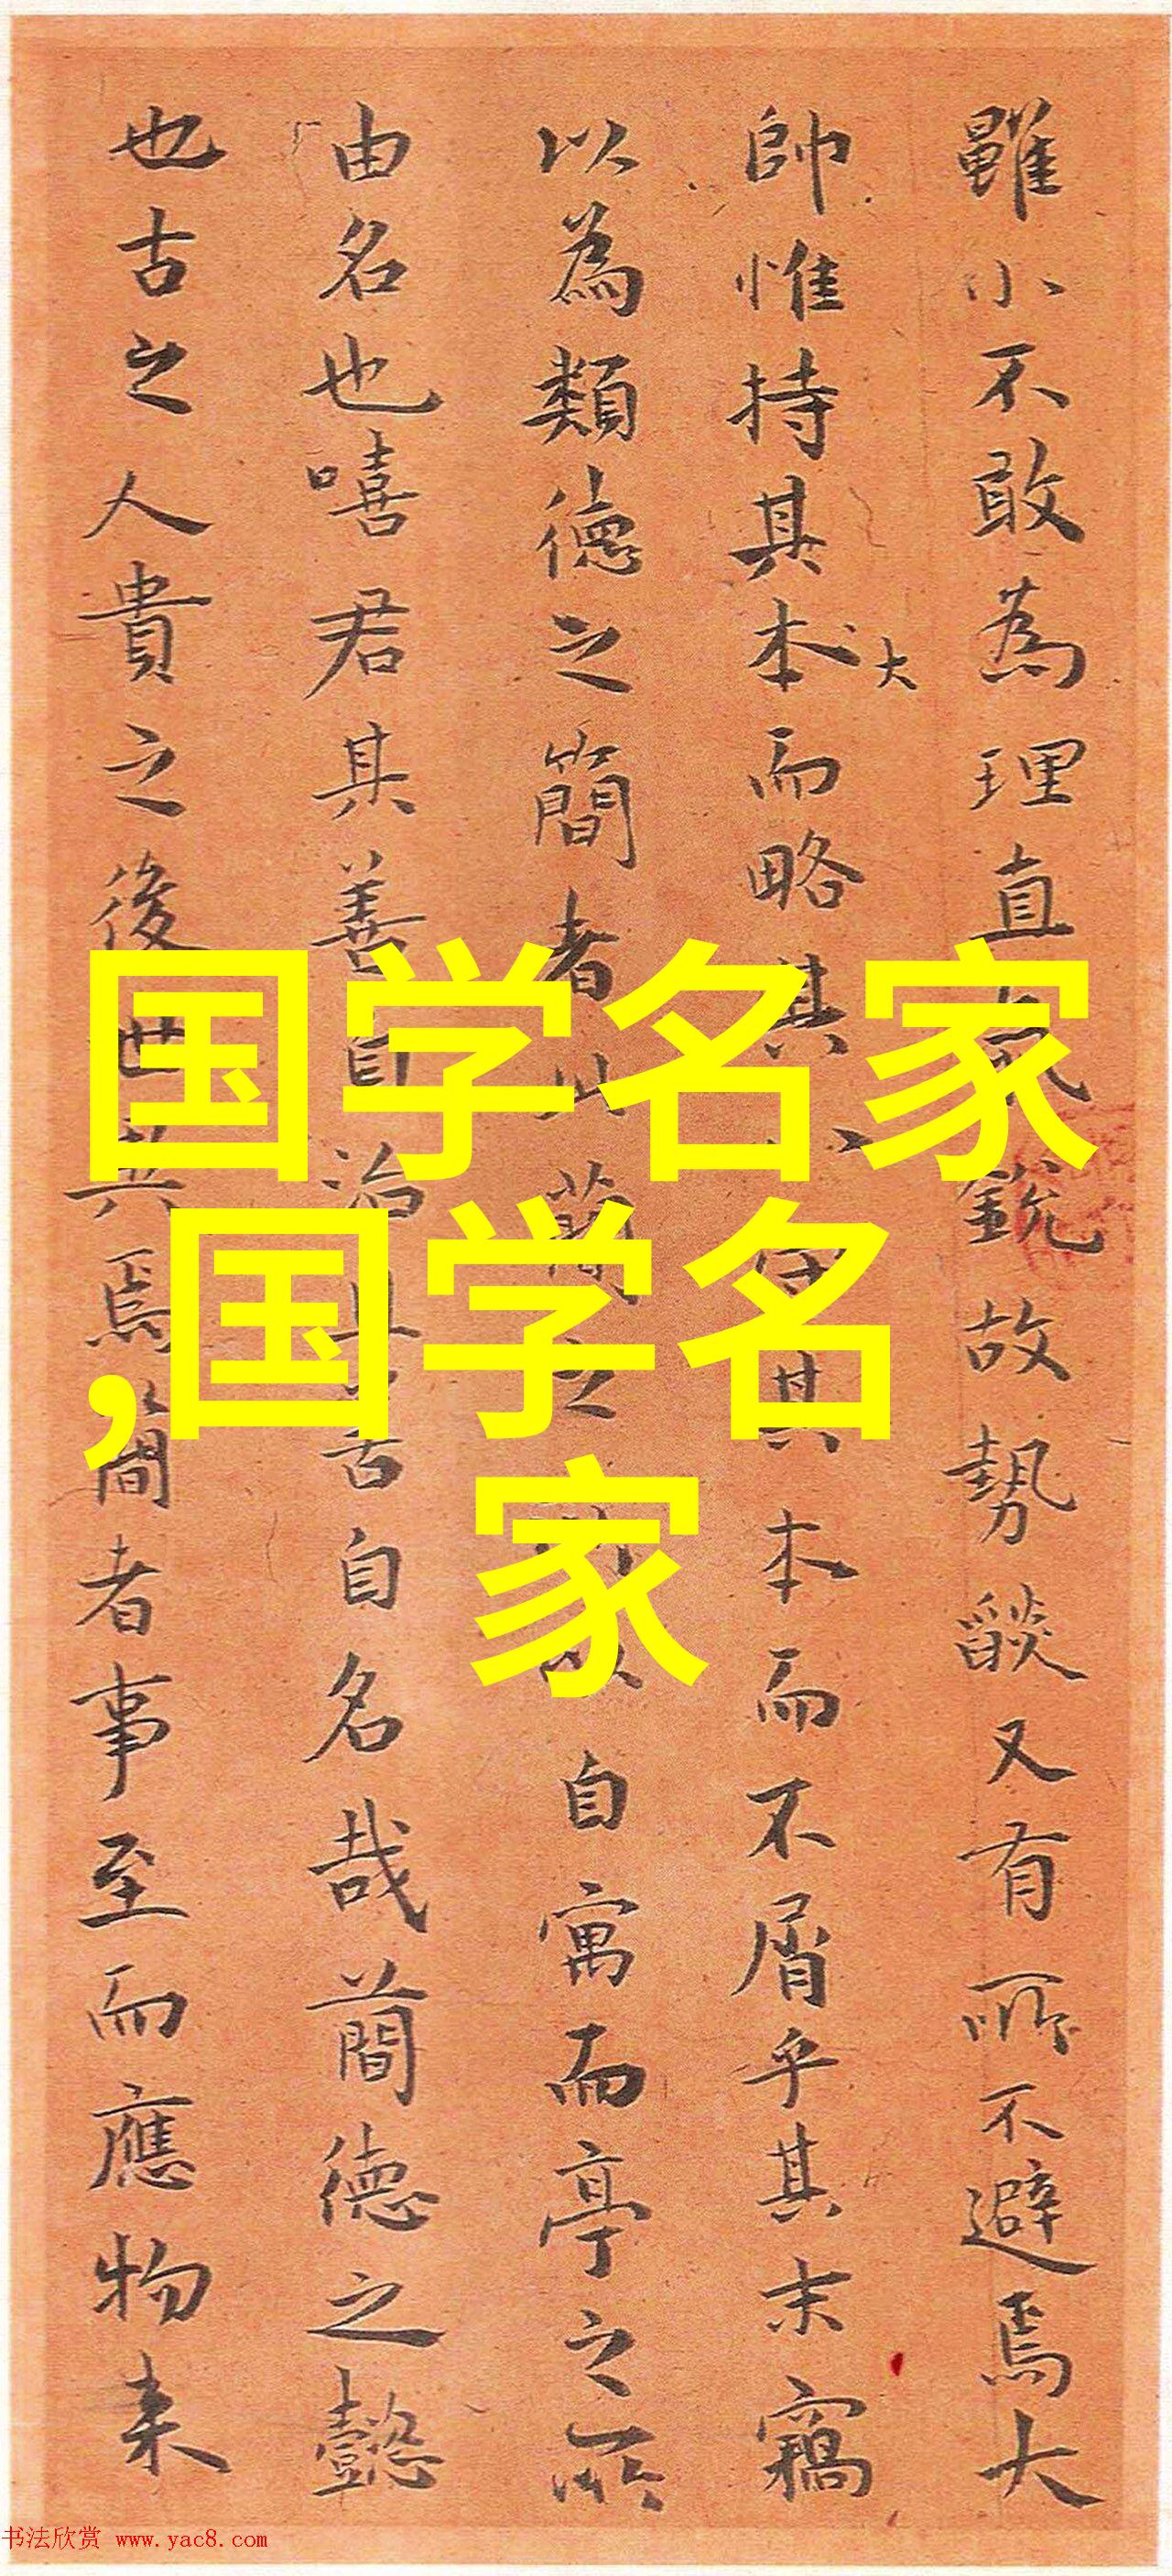 雖小不敢為理直氣銳故勢燄又有所不避焉大
帥惟持其本大而略其
其本而不屑乎其末竊
以為類德之簡者以簡之
自寓而亭之所
由名也嘻君其善自治
自名哉簡德之懿
也古之人貴之後世共焉簡者事至而應物来
国学名家
,国学名
家
书法欣赏 www.yac8.com